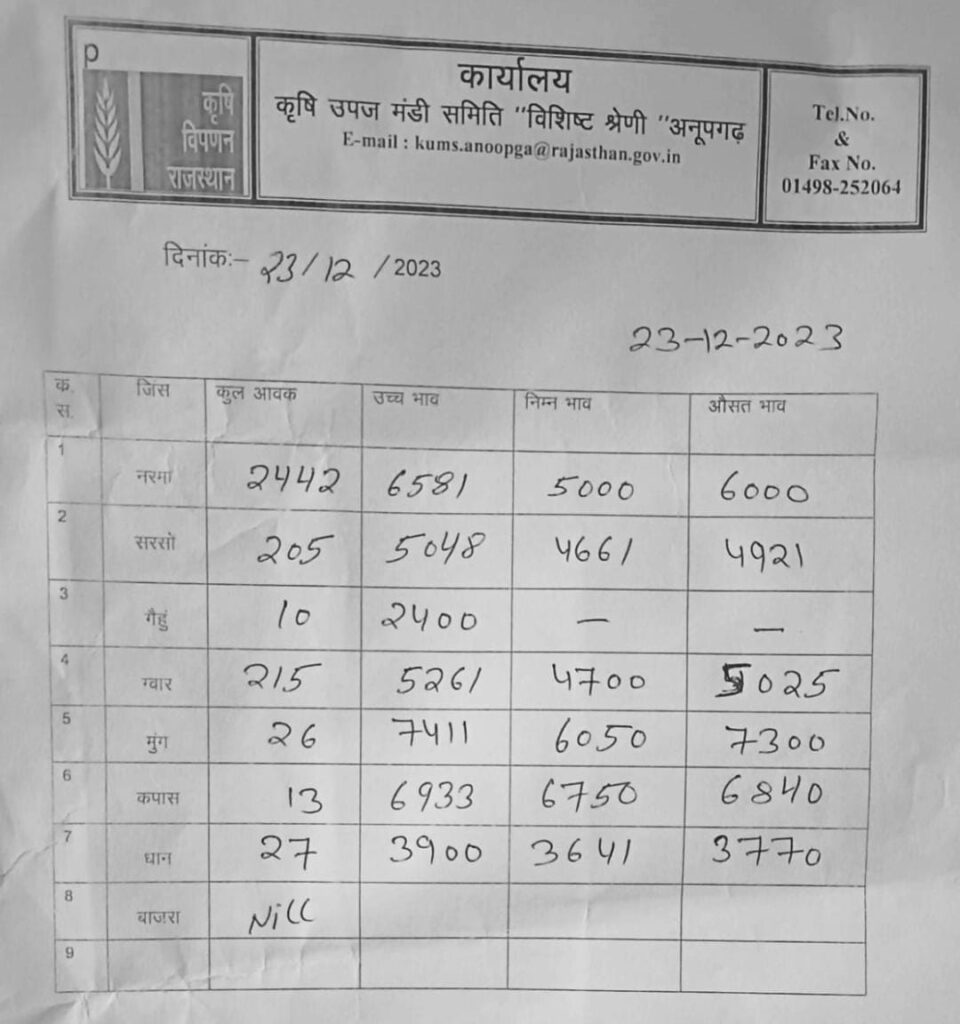 p
कृषि
विपणन
राजस्थान
कार्यालय
कृषि उपज मंडी समिति "विशिष्ट श्रेणी "अनूपगढ़
E-mail : kums.anoopga@rajasthan.gov.in
Tel.No.
&
Fax No.
01498-252064
दिनांकः– 23/12 /2023
23-12-2023
क. स. जिंस कुल आवक उच्च भाव निम्न भाव औसत भाव
1 नरमा 2442 6581 5000 6000
2 सरसो 205 5048 4661 4921
3 गैहुं 10 2400 — —
4 ग्वार 215 5261 4700 5025
5 मुंग 26 7411 6050 7300
6 कपास 13 6933 6750 6840
7 धान 27 3900 3641 3770
8 बाजरा Nill
9